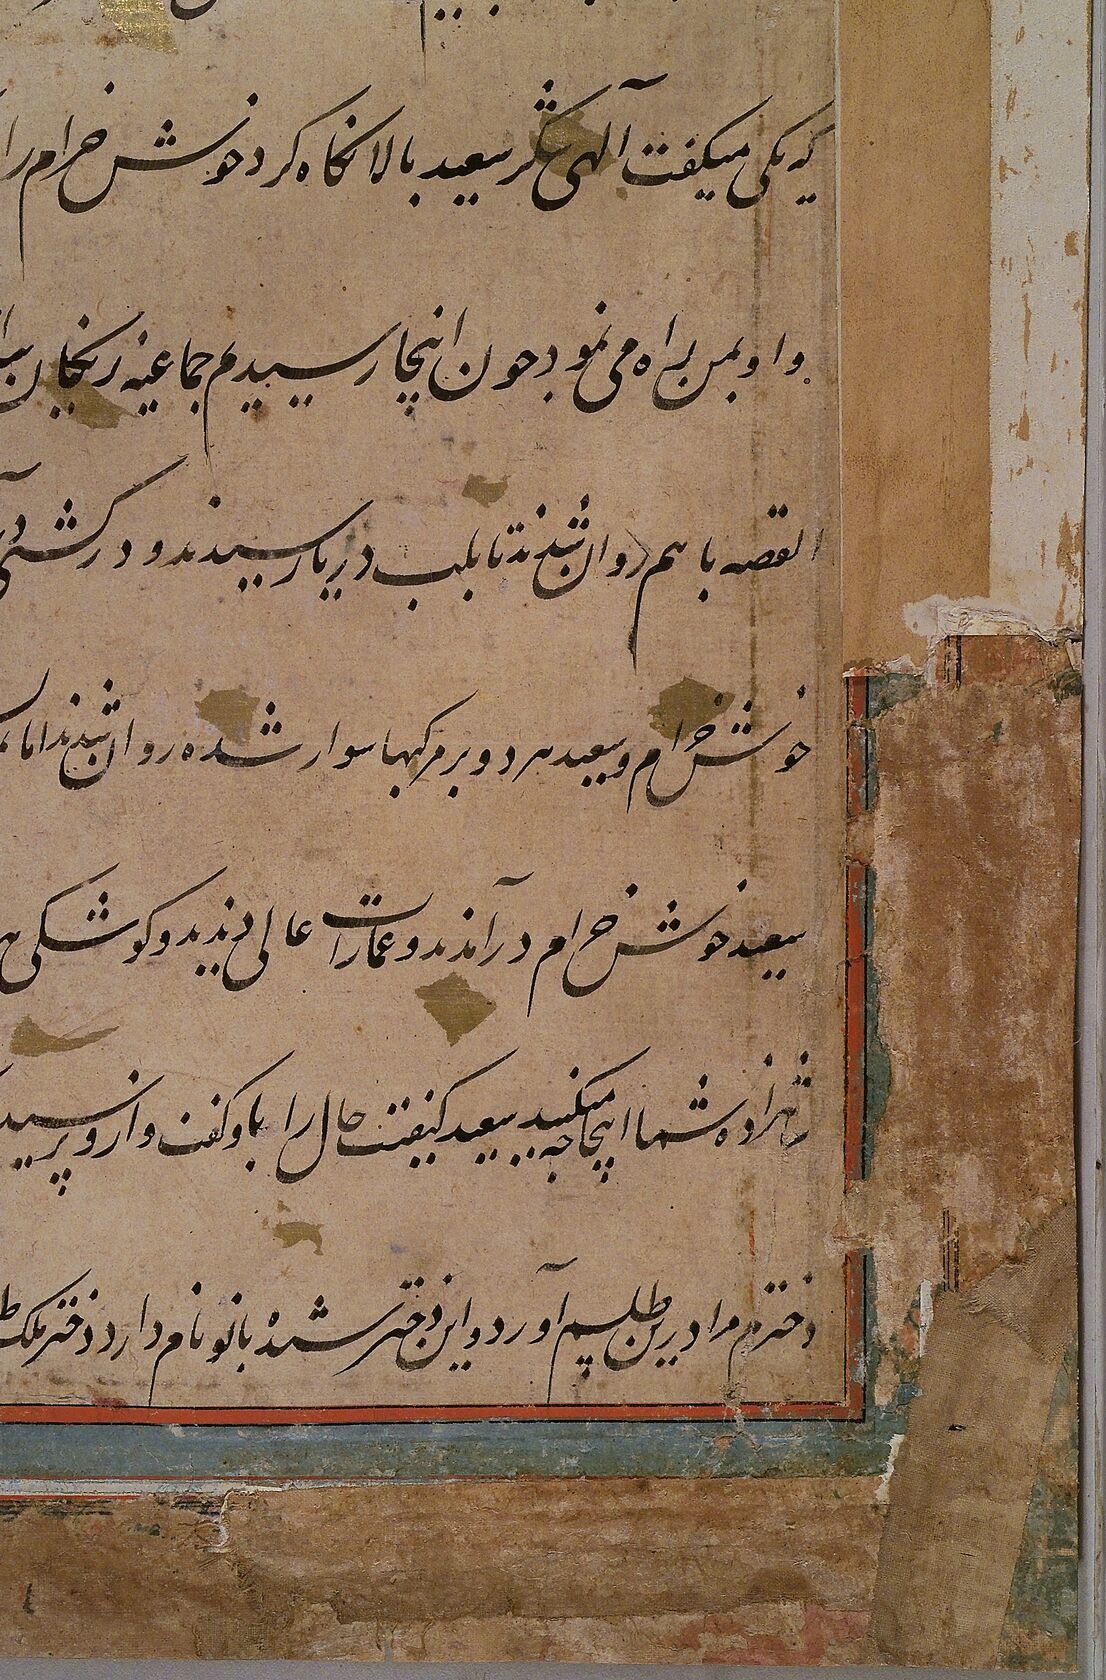 که یکی میکفت آلهی شکر سعید بالا نکاه کرد خوش خرام را
و او بمن راه می نمود چون اینجا رسیدم جماعتی زنکیان
القصه با هم روان شدند تا بلب دریا رسیدند و در کشتی
خوش خرام و سعید هر دو بر مرکبها سوار شده روان شدند اما
سعید خوش خرام در آمدند و عمارات عالی دیدند و کوشکی
شاهزاده شما اینجا چه میکنید سعید کیفیت حال را باو کفت و ازو پرسید
دخترم مرا درین طلسم آورد و این دختر شده بانو نام دارد دختر ملک